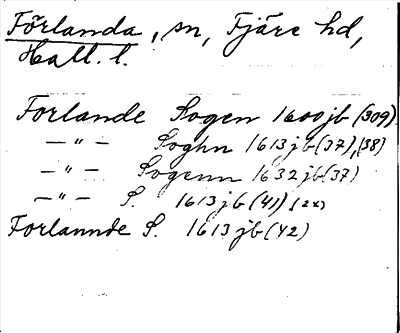 Förlanda, sn, Fjäre hd,
Hall. l.
Forlande Sogen 1600jb (309)
— " — Soghn 1613jb (37), (38)
— " — Sogenn 1632jb (37)
— " — S. 1613jb (41) (2x)
Forlannde S. 1613jb (42)